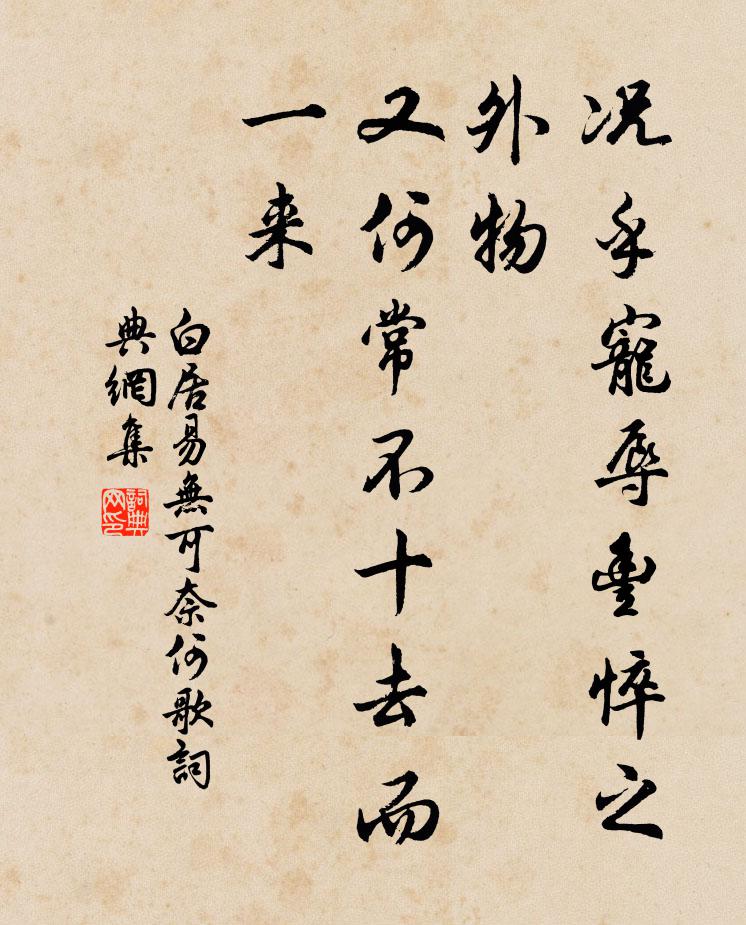 况乎寵辱豐悴之
外物
又何常不十去而
一来
白居易無可奈何歌詞
典網集
詞典
网印